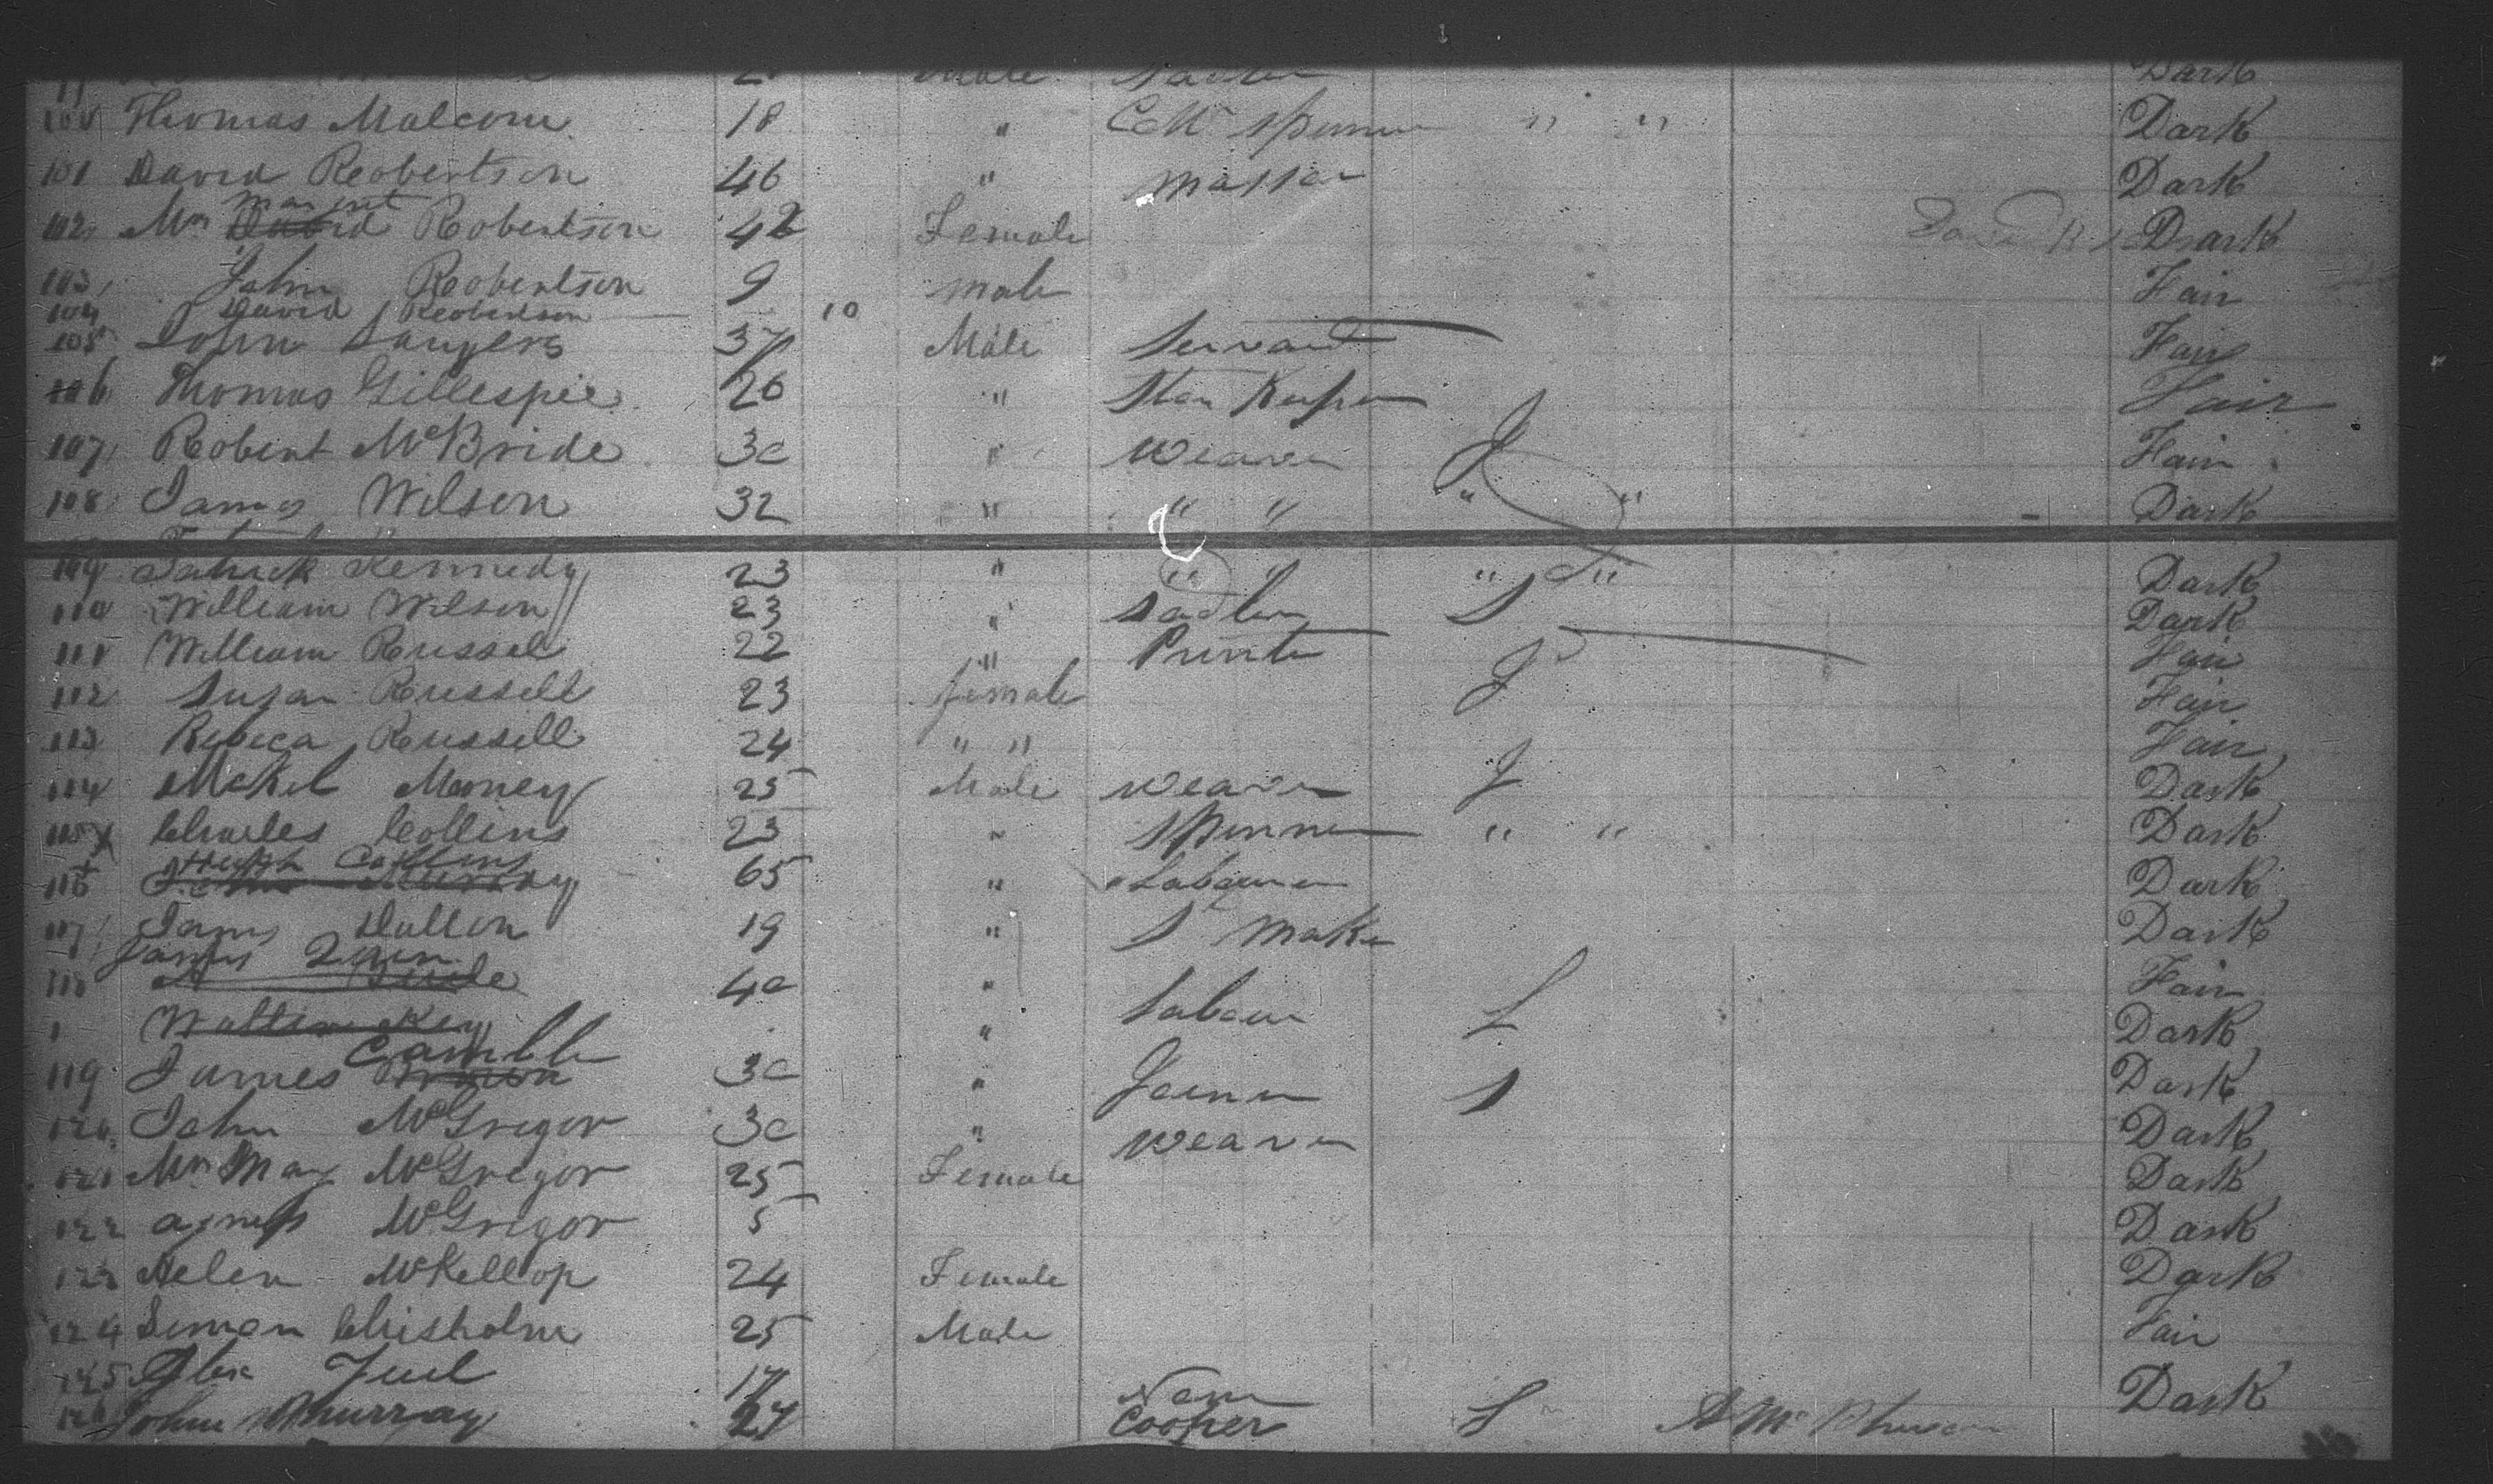 Male Dark
100 Thomas Malcom 18 " " " Dark
101 David Robertson 46 " Dark
102 Mrs Margret David Robertson 42 Female Dark
103 John Robertson 9 Male Fair
104 David Robertson 10
105 John Sanders 37 Male Servant Fair
106 Thomas Gillespie 26 " Fair
107 Robert McBride 30 " Weaver Fair
108 James Wilson 32 " " " " " Dark
109 Patrick Kennedy 23 " " " " " Dark
110 William Wilson 23 " Sadler S Dark
111 William Russell 22 " Printer Fair
112 Susan Russell 23 female Fair
113 Rebeca Russell 24 " " Fair
114 Mickel Morney 25 Male Weaver Dark
115 Charles Collins 23 " Spinner " " Dark
116 Hugh Collins 65 " Labourer Dark
117 James Dullon 19 " S Maker Dark
118 James 40 " Labour Fair
1 Walter Key " Dark
119 James Gamble 30 " Joiner S Dark
120 John McGregor 30 " Weaver Dark
121 Mrs May McGregor 25 Female Dark
122 Agness McGregor 5 Dark
123 Helen McKellop 24 Female Dark
124 Simon Chisholm 25 Male Fair
125 Alex 17 Dark
126 John Murray 27 Cooper